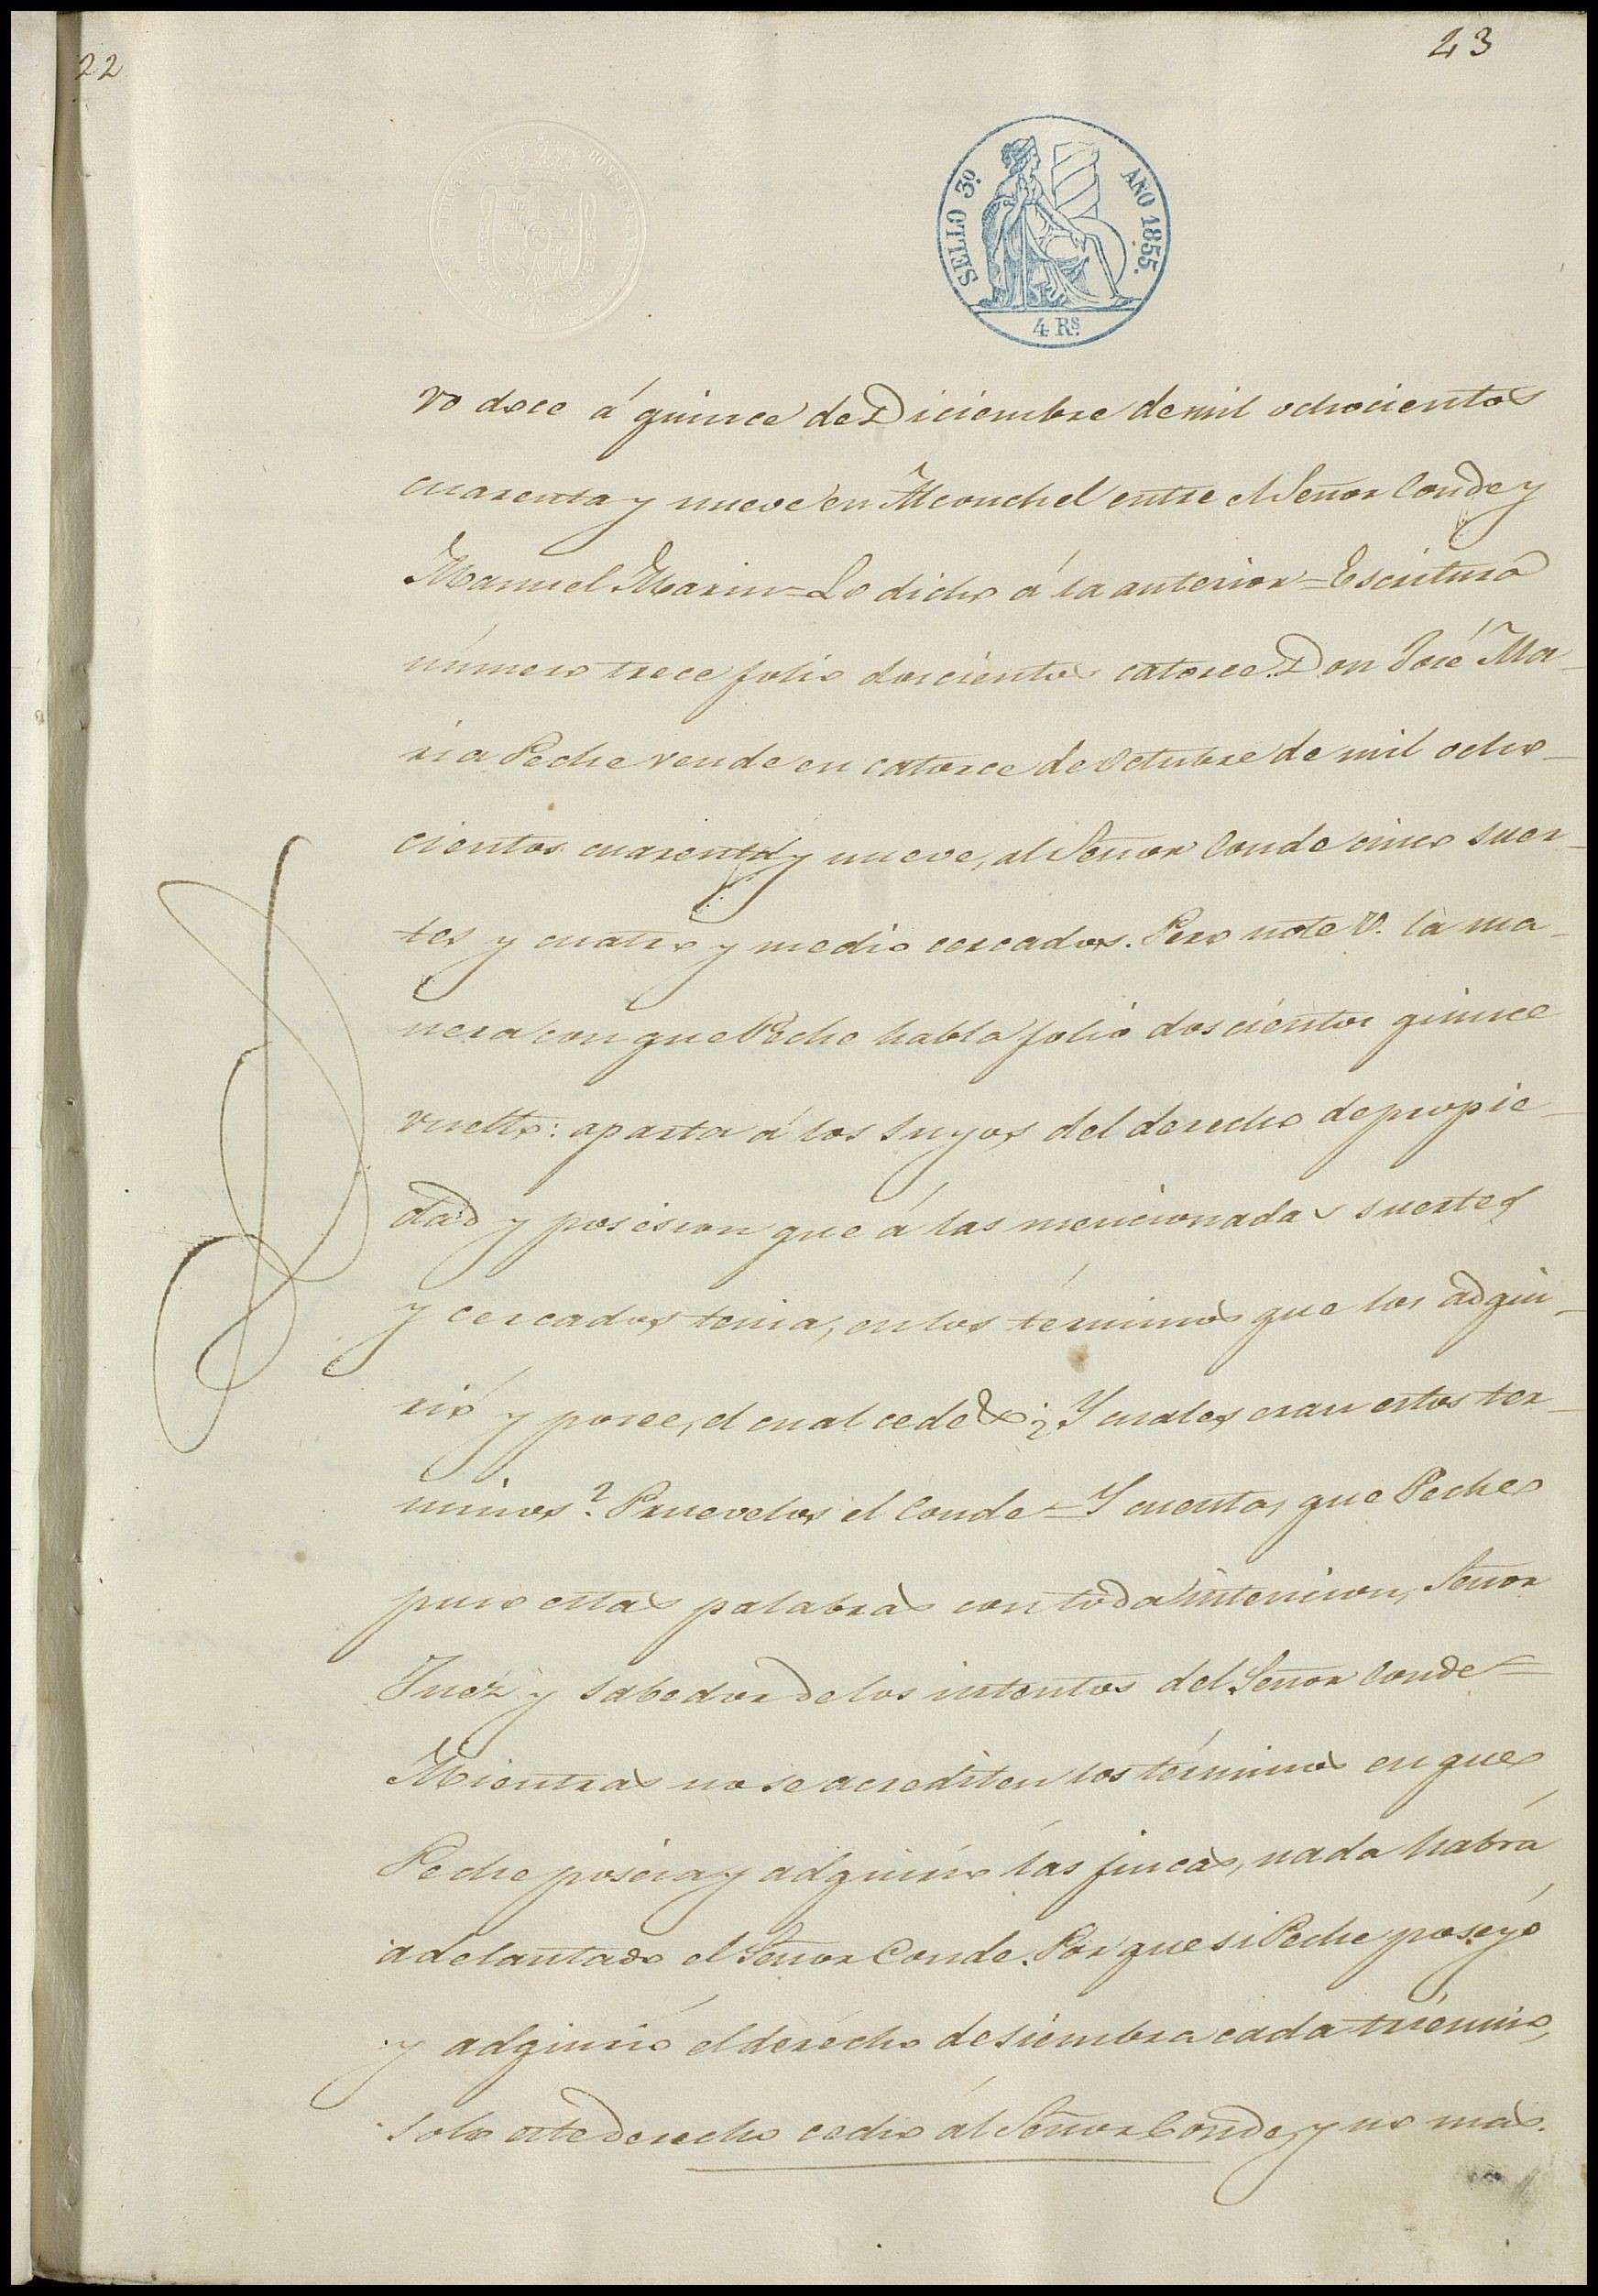 22
23
SELLO 3º
AÑO 1855.
4 Rs.
ro doce á quince de Diciembre de mil ochocientos
cuarenta y nueve en Alconchel entre el Señor Conde y
Manuel Marin = Lo dicho á la anterior = Escritura
número trece folio doscientos catorce. Don José Ma-
ria Peche vende en catorce de Octubre de mil ocho-
cientos cuarenta y nueve, al Señor Conde cinco suer-
tes y cuatro y medio cercados. Pero note V. la ma-
nera con que Peche habla folio doscientos quince
vuelto: aparta á los suyos del derecho de propie-
dad y posesion que á las mencionadas suertes
y cercados tenia, en los términos que los adqui-
rió y posee, el cual cede &ª ¿Y cuales eran estos ter-
minos? Pruevelos el Conde = Y cuenta, que Peche
puso estas palabras con toda intencion, Señor
Juez y sabedor de los intentos del Señor Conde =
Mientras no se acrediten los términos en que
Peche poseia y adquirio las fincas, nada habrá
adelantado el Señor Conde. Por que si Peche poseyó
y adquirió el derecho de siembra cada trienio,
solo este derecho cedio al Señor Conde, y no mas.